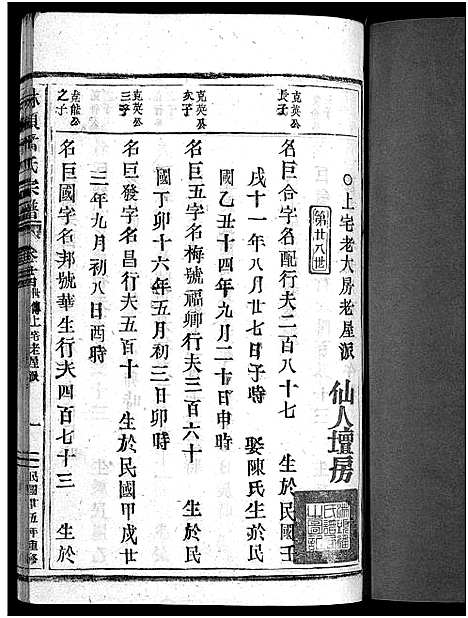 ○上宅老大房老屋派
仙人壇房
第廿八世
克英公長子
名巨合字名配行夫二百八十七 生於民國壬
戌十一年八月廿七日子時 娶陳氏生於民
國乙丑十四年九月二十日申時
克英公次子
名巨五字名梅號福卿行夫三百六十 生於民
國丁卯十六年五月初三日卯時
克英公三子
名巨發字名昌行夫五百十 生於民國甲戌廿
三年九月初八日酉時
克能公之子
名巨國字名邦號華生行夫四百七十三 生於
氏宗譜
傳上宅老屋派
一
民國廿五年重修